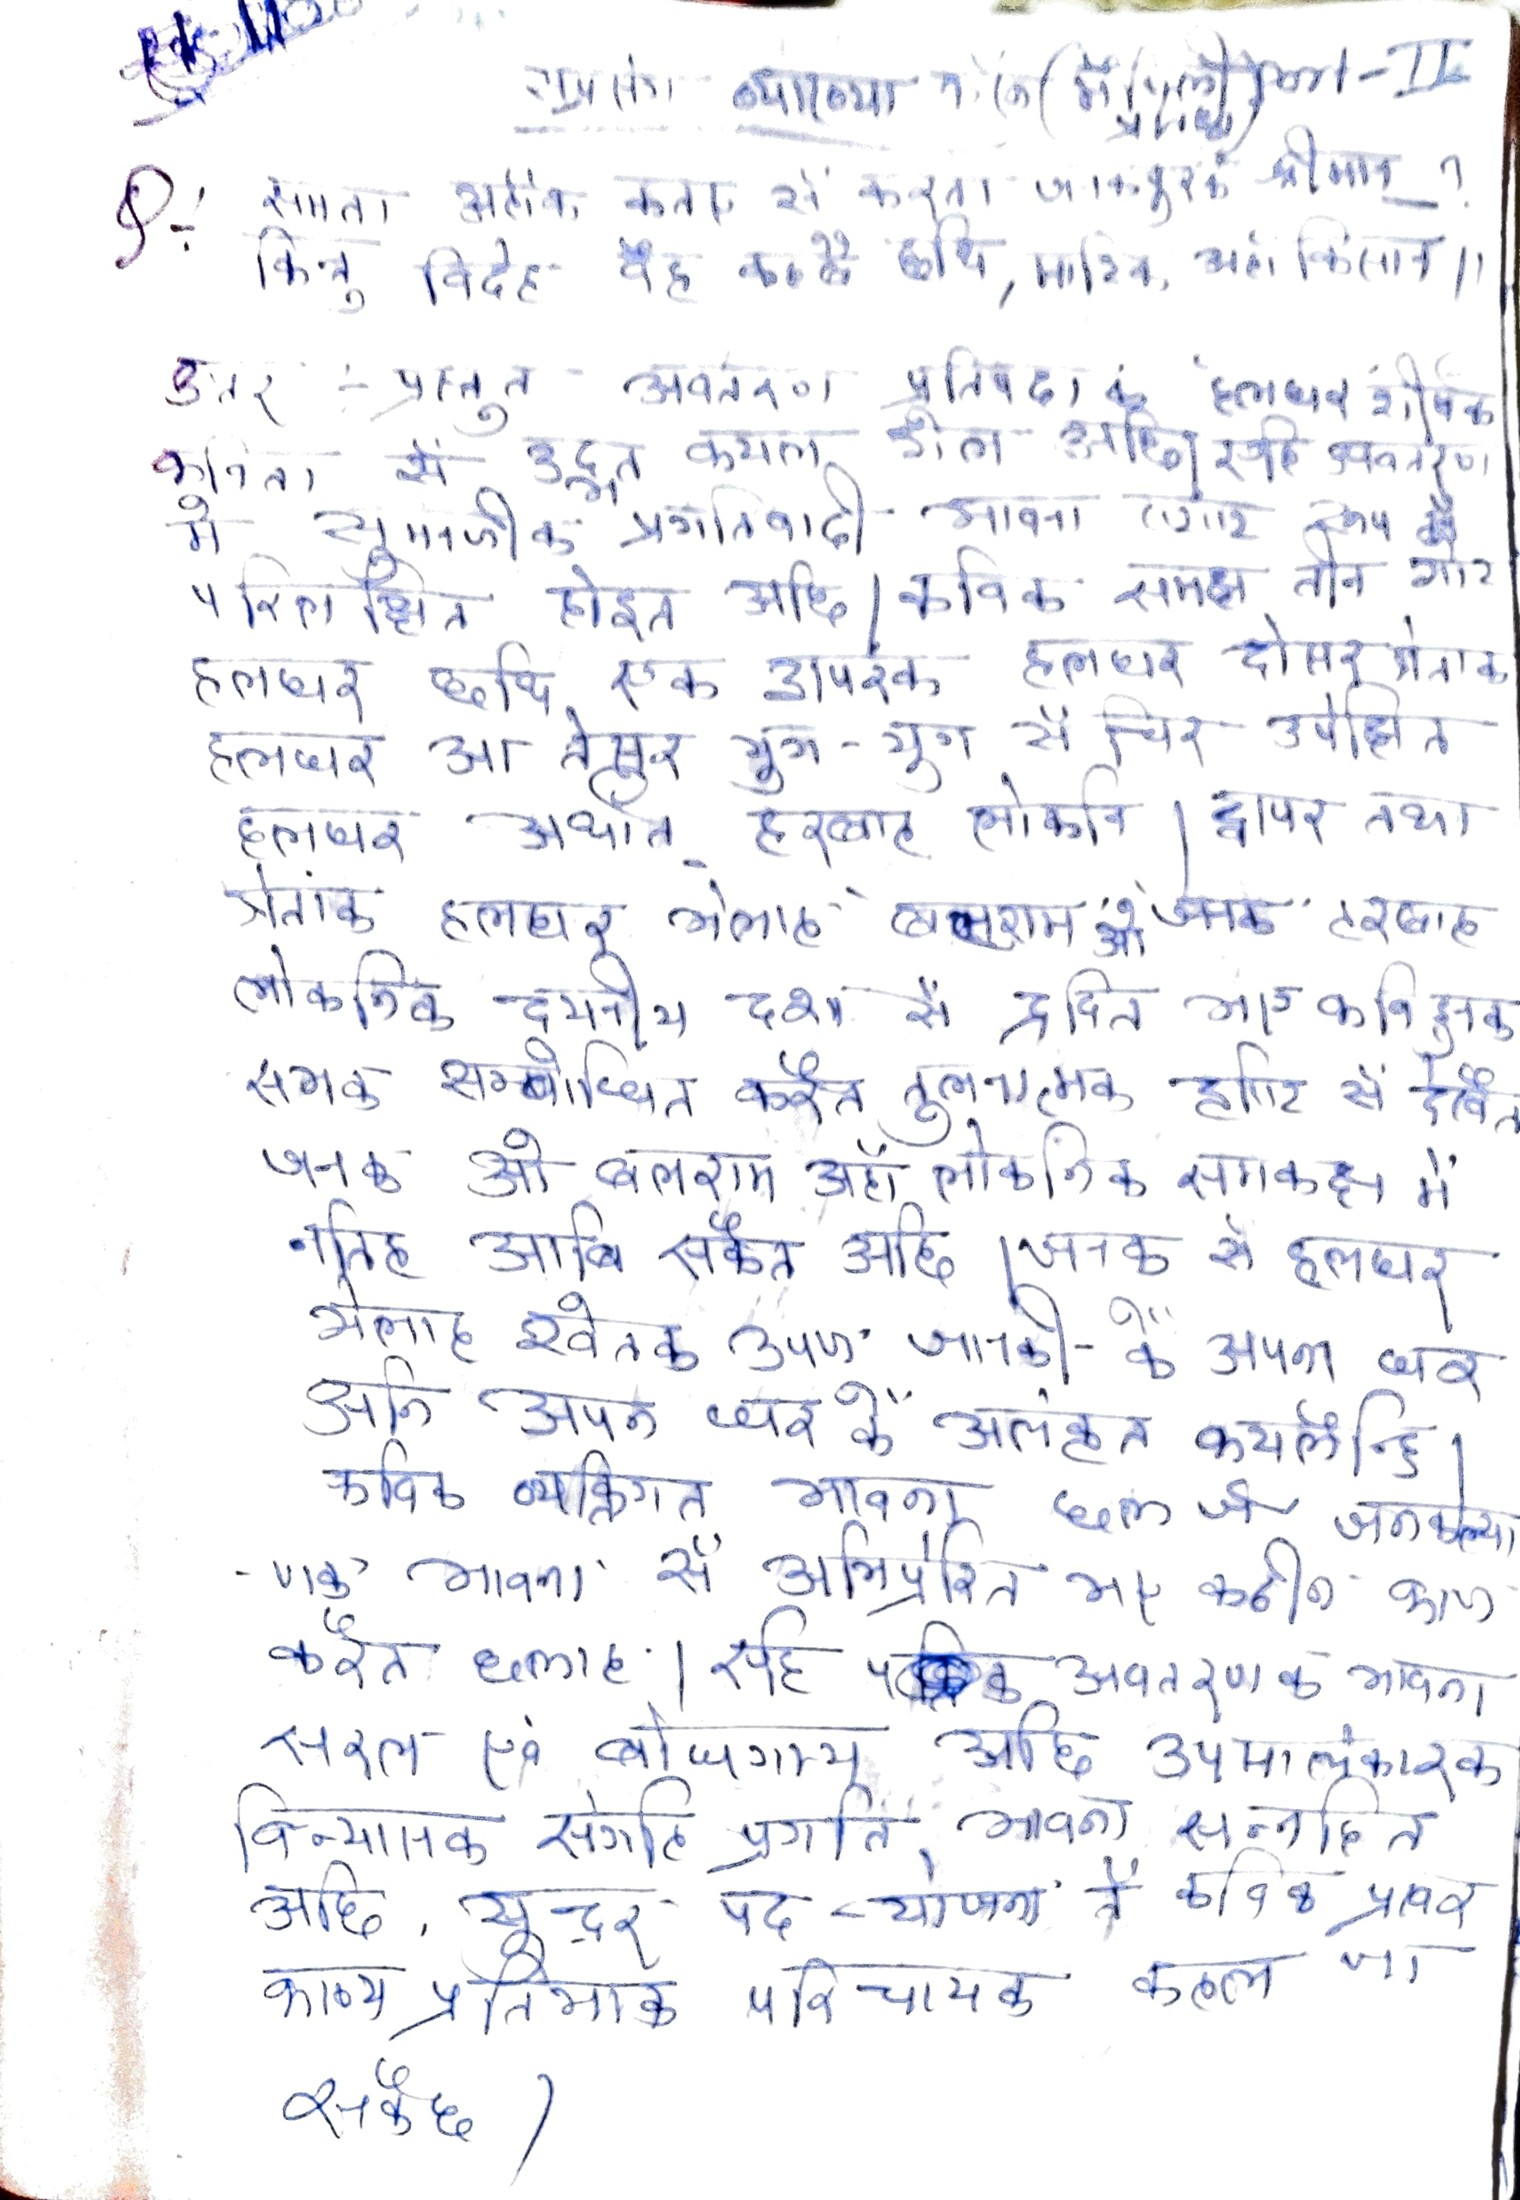 सप्रसंग व्याख्या करू (मैथिली प्रतिष्ठा) - II
Q:- समता अहाँक कतए सँ करता जनकपुरक श्रीमान ?
किन्तु विदेह वैह छथि, मात्रिक, अहाँ किसान ॥
उत्तर :- प्रस्तुत अवतरण प्रतिपदा क हलधर शीर्षक
कविता सँ उद्धृत कयल गेल अछि। एहि अवतरण
मे सुमनजीक प्रगतिवादी भावना स्पष्ट रूप सँ
परिलक्षित होइत अछि। कविक समक्ष तीन गोट
हलधर छथि एक द्वापरक हलधर दोसर त्रेताक
हलधर आ तेसर युग-युग सँ चिर उपेक्षित
हलधर अर्थात हरबाह लोकनि। द्वापर तथा
त्रेताक हलधर भेलाह बलराम ओ जनक हरबाह
लोकनिक दयनीय दशा सँ द्रवित भए कवि हुनक
सभक सम्बोधित करैत तुलनात्मक दृष्टि सँ देखैत
जनक ओ बलराम अहाँ लोकनिक समकक्ष में
नहि आबि सकैत अछि। जनक सँ हलधर
भेलाह खेतक उपज जानकी कें अपना घर
आनि अपन घर कें अलंकृत कयलैन्हि।
कविक व्यक्तिगत भावना छल जे जनकल्या
-णक भावना सँ अभिप्रेरित भए कठीन काज
करैत छलाह। एहि अवतरणक भावना
सरल एवं बोधगम्य अछि उपमालंकारक
विन्यासक संगहि प्रगति भावना सन्नहित
अछि, सुन्दर पद-योजना तँ कविक प्रखर
काव्य प्रतिभाक परिचायक कहल जा
सकैछ।